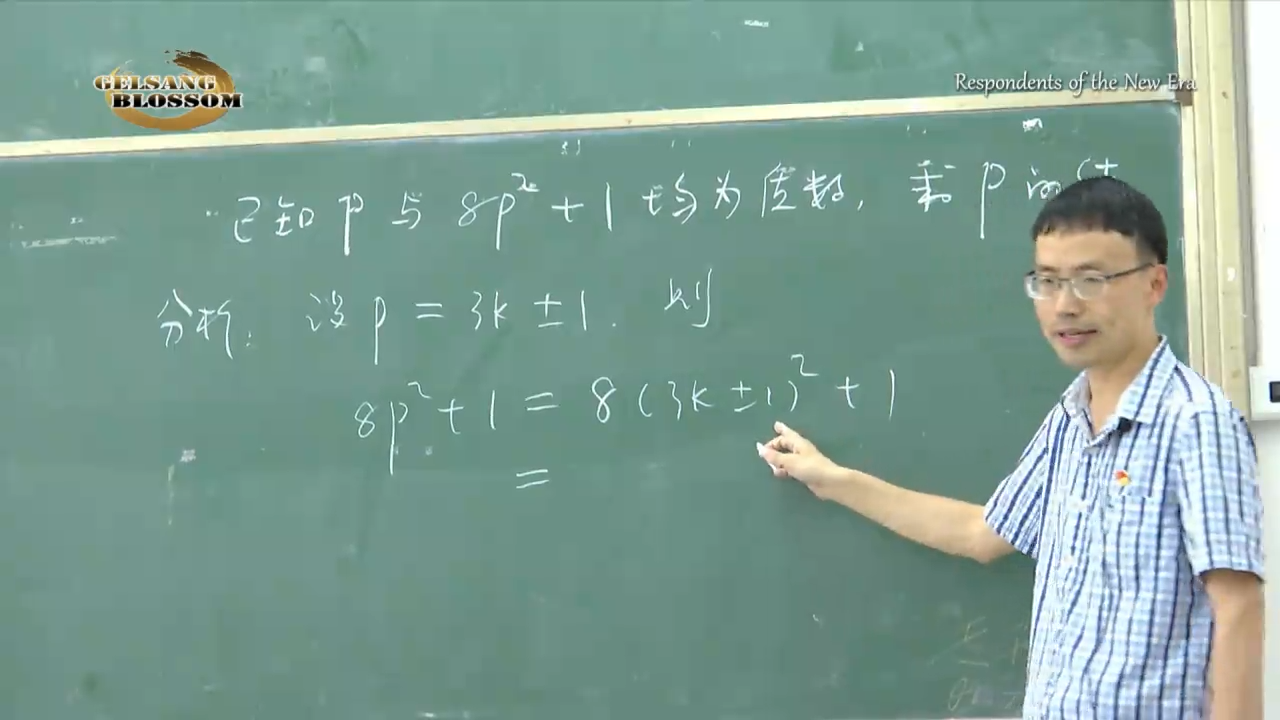 GELSANG
BLOSSOM
Respondents of the New Era
已知 p 与 8p²+1 均为质数, 求 p 的
分析: 设 p = 3k ± 1. 则
8p² + 1 = 8(3k ± 1)² + 1
=